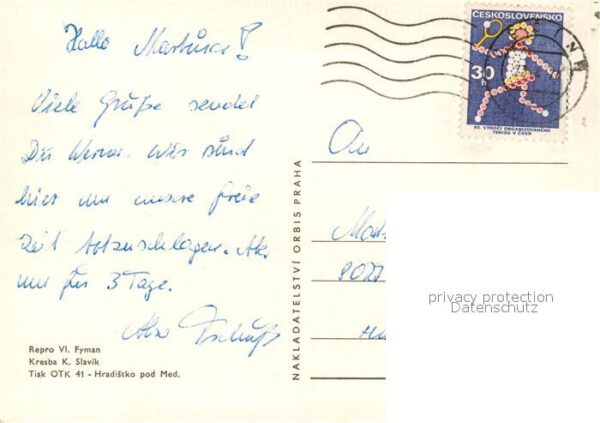 Hallo Martina!
Viele Grüße sendet
Dir Werner. Wir sind
hier um unsere freie
Zeit totzuschlagen. Ab.
nur für 3 Tage.
Also Tschüß
Repro Vl. Fyman
Kresba K. Slavík
Tisk OTK 41 - Hradištko pod Med.
NAKLADATELSTVÍ ORBIS PRAHA
ČESKOSLOVENSKO
30
h
80. VÝROČÍ ORGANIZOVANÉHO
TENISU V ČSSR
An
privacy protection
Datenschutz